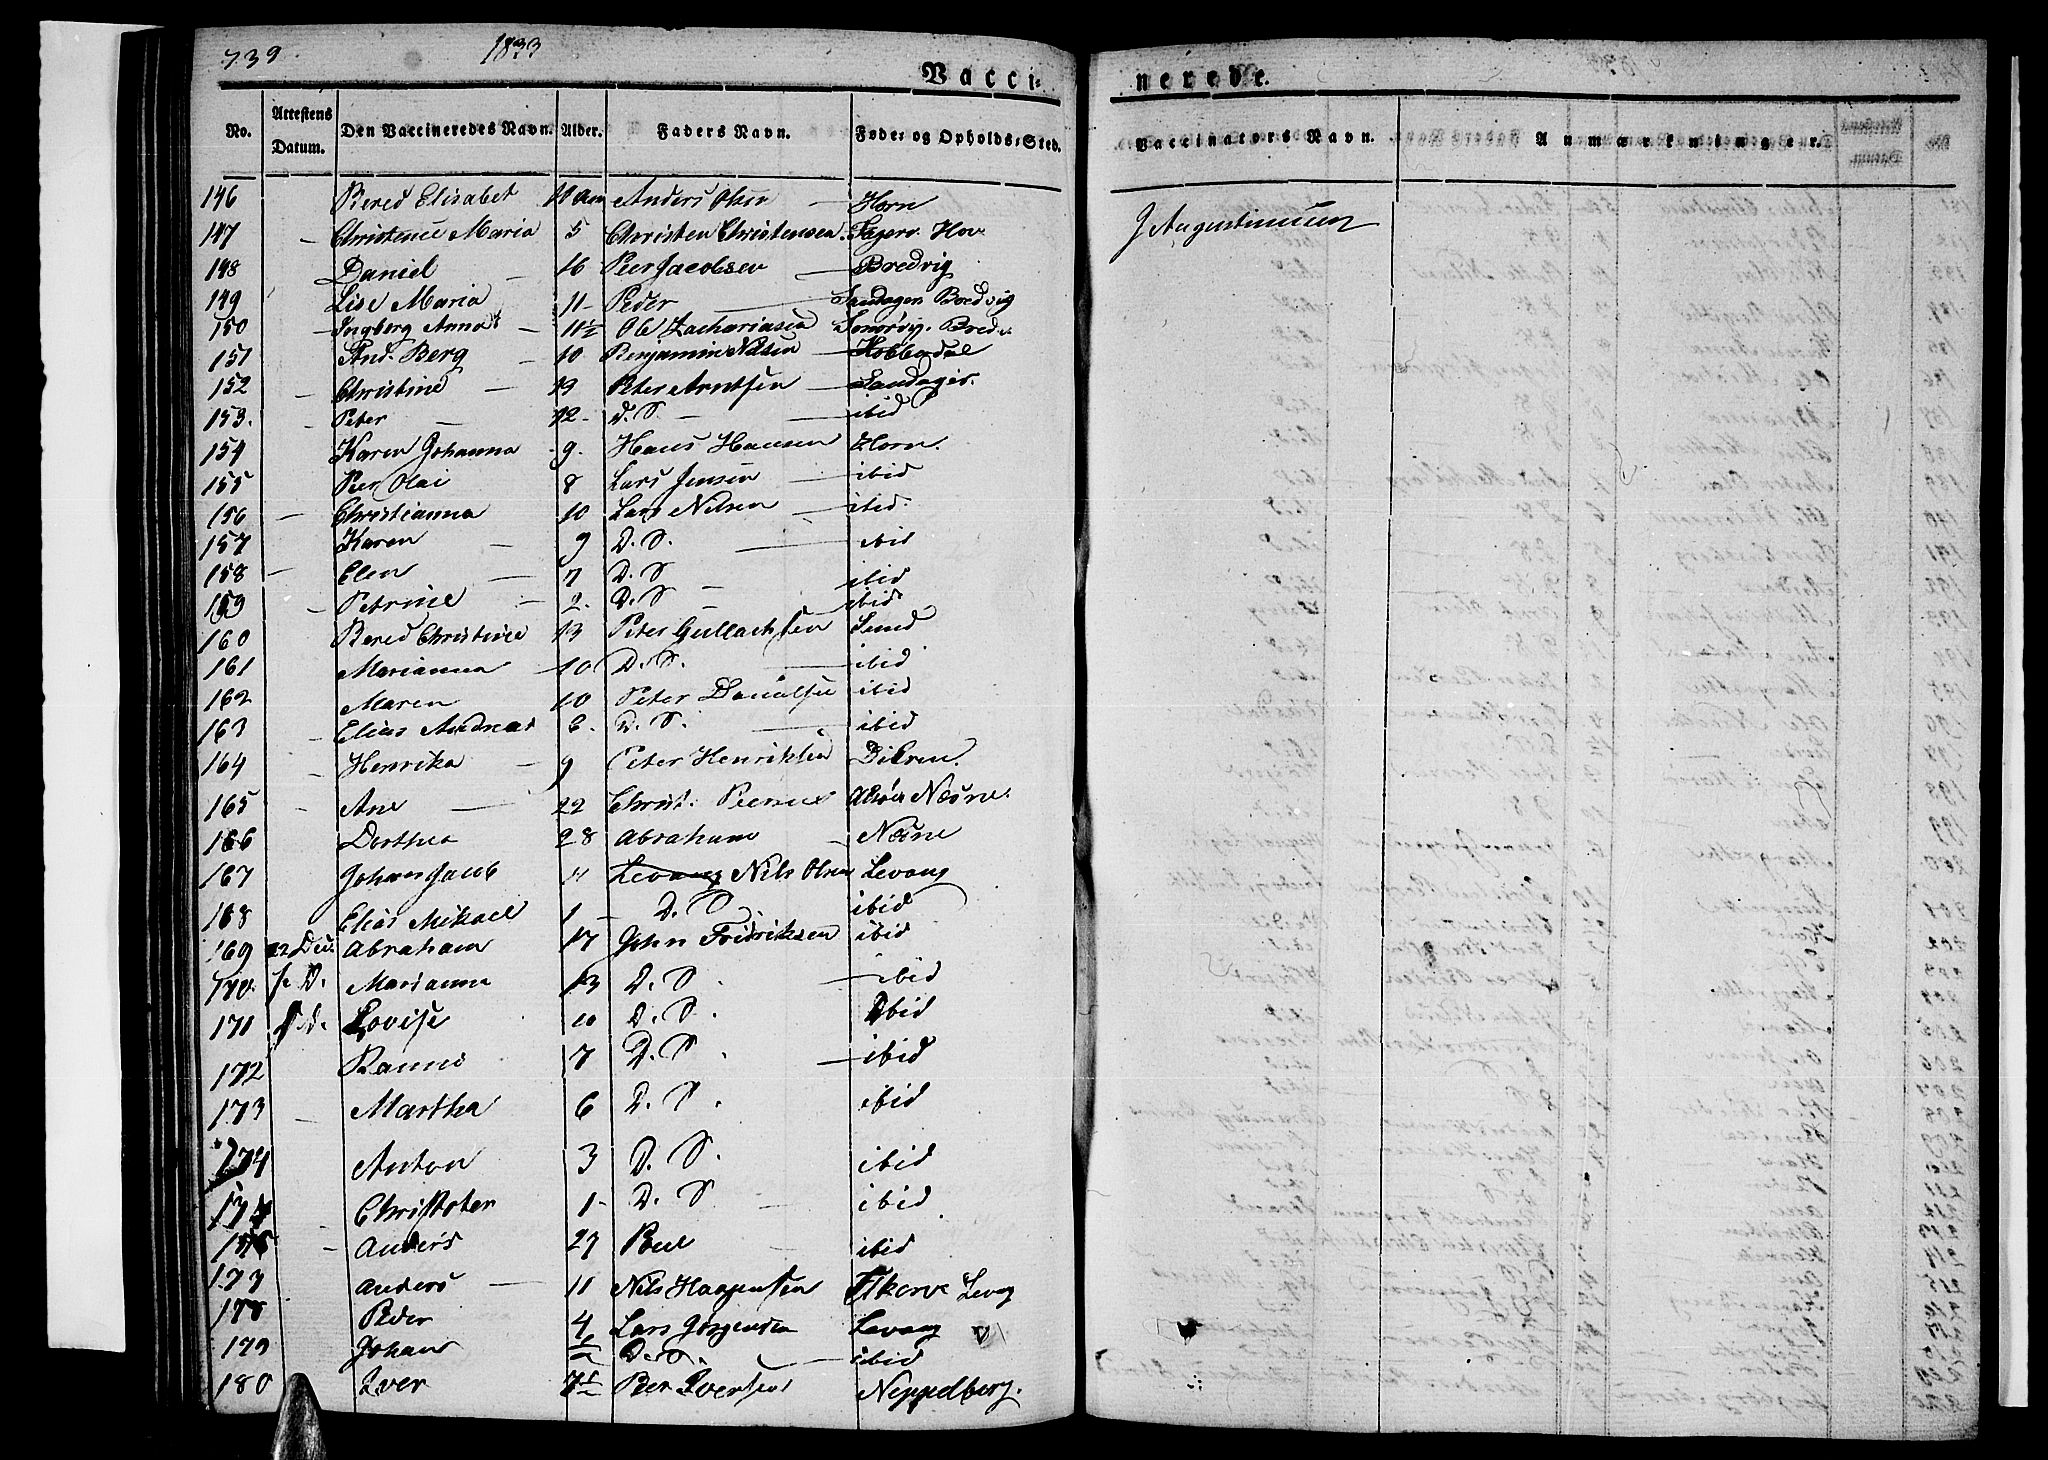 739. 1833
Vacci- nerede.
No. Attestens Datum. Den Vaccineredes Navn. Alder. Faders Navn. Føde- og Opholds-Sted. Vaccinators Navn. Anmærkninger.
146 Bered Elisabet 11 Anders Olsen — Horn
147 — Christence Maria 5 Christen Christensen Hov J Augustinussen
148 Daniel — 16 Peer Jacobsen — Bredvig
149 Lise Maria 11 — Peder — Sandager Bredvig
150 — Ingberg Anna — 11½ Ole Zachariasen
151 And. Berg — 10 Benjamin Nilsen — Kobberdal
152 — Christine — 19 Peter Arntsen — Sandager.
153. Peter — 12 - D. S. — ibid
154 Karen Johanna - 9. Hans Hansen Horn.
155 Peer Olai 8 Lars Jensen — ibid
156 — Christianna 10 Lars Nilsen — ibid.
157 Karen — 9 D. S. — ibid
158 — Elen — 7 D. S — ibid
159 — Petrine — 2. D. S — ibid.
160 Bered Christine 13 Peter Gullachsen Lund
161 Marianna — 10 D. S. — ibid
162 Maren 10 Peter Danielsen ibid
163 — Elias Andreas 6. D. S. — ibid
164 — Henrika — 9 Peter Henriksen
165 — Ane — 22 Christ. Næsne.
166 Dorthea 28 Abraham — Næsne
167 Johan Jacob 11 Levang Nils Olsen Levang
168 Elias Mikael 1 — D. S. ibid
169 22 Dec. Abraham 17 John Fridriksen ibid
170. D. Marianna 13 D. S. — ibid
171 D. Lovise 10 D. S. ibid
172 7 D. S. — ibid
173 — Martha 6 D. S. ibid
174 Anton 3 D. S. ibid
Christofer 1 - D. S — ibid
— Anders 27 Poul — ibid
177 Anders — 11 Nils Haagensen Levang
178 Peder 4 Lars Jørgensen Levang
179 Johan ½ D. S. — ibid
180 Iver Peer Iversen Neppelberg.